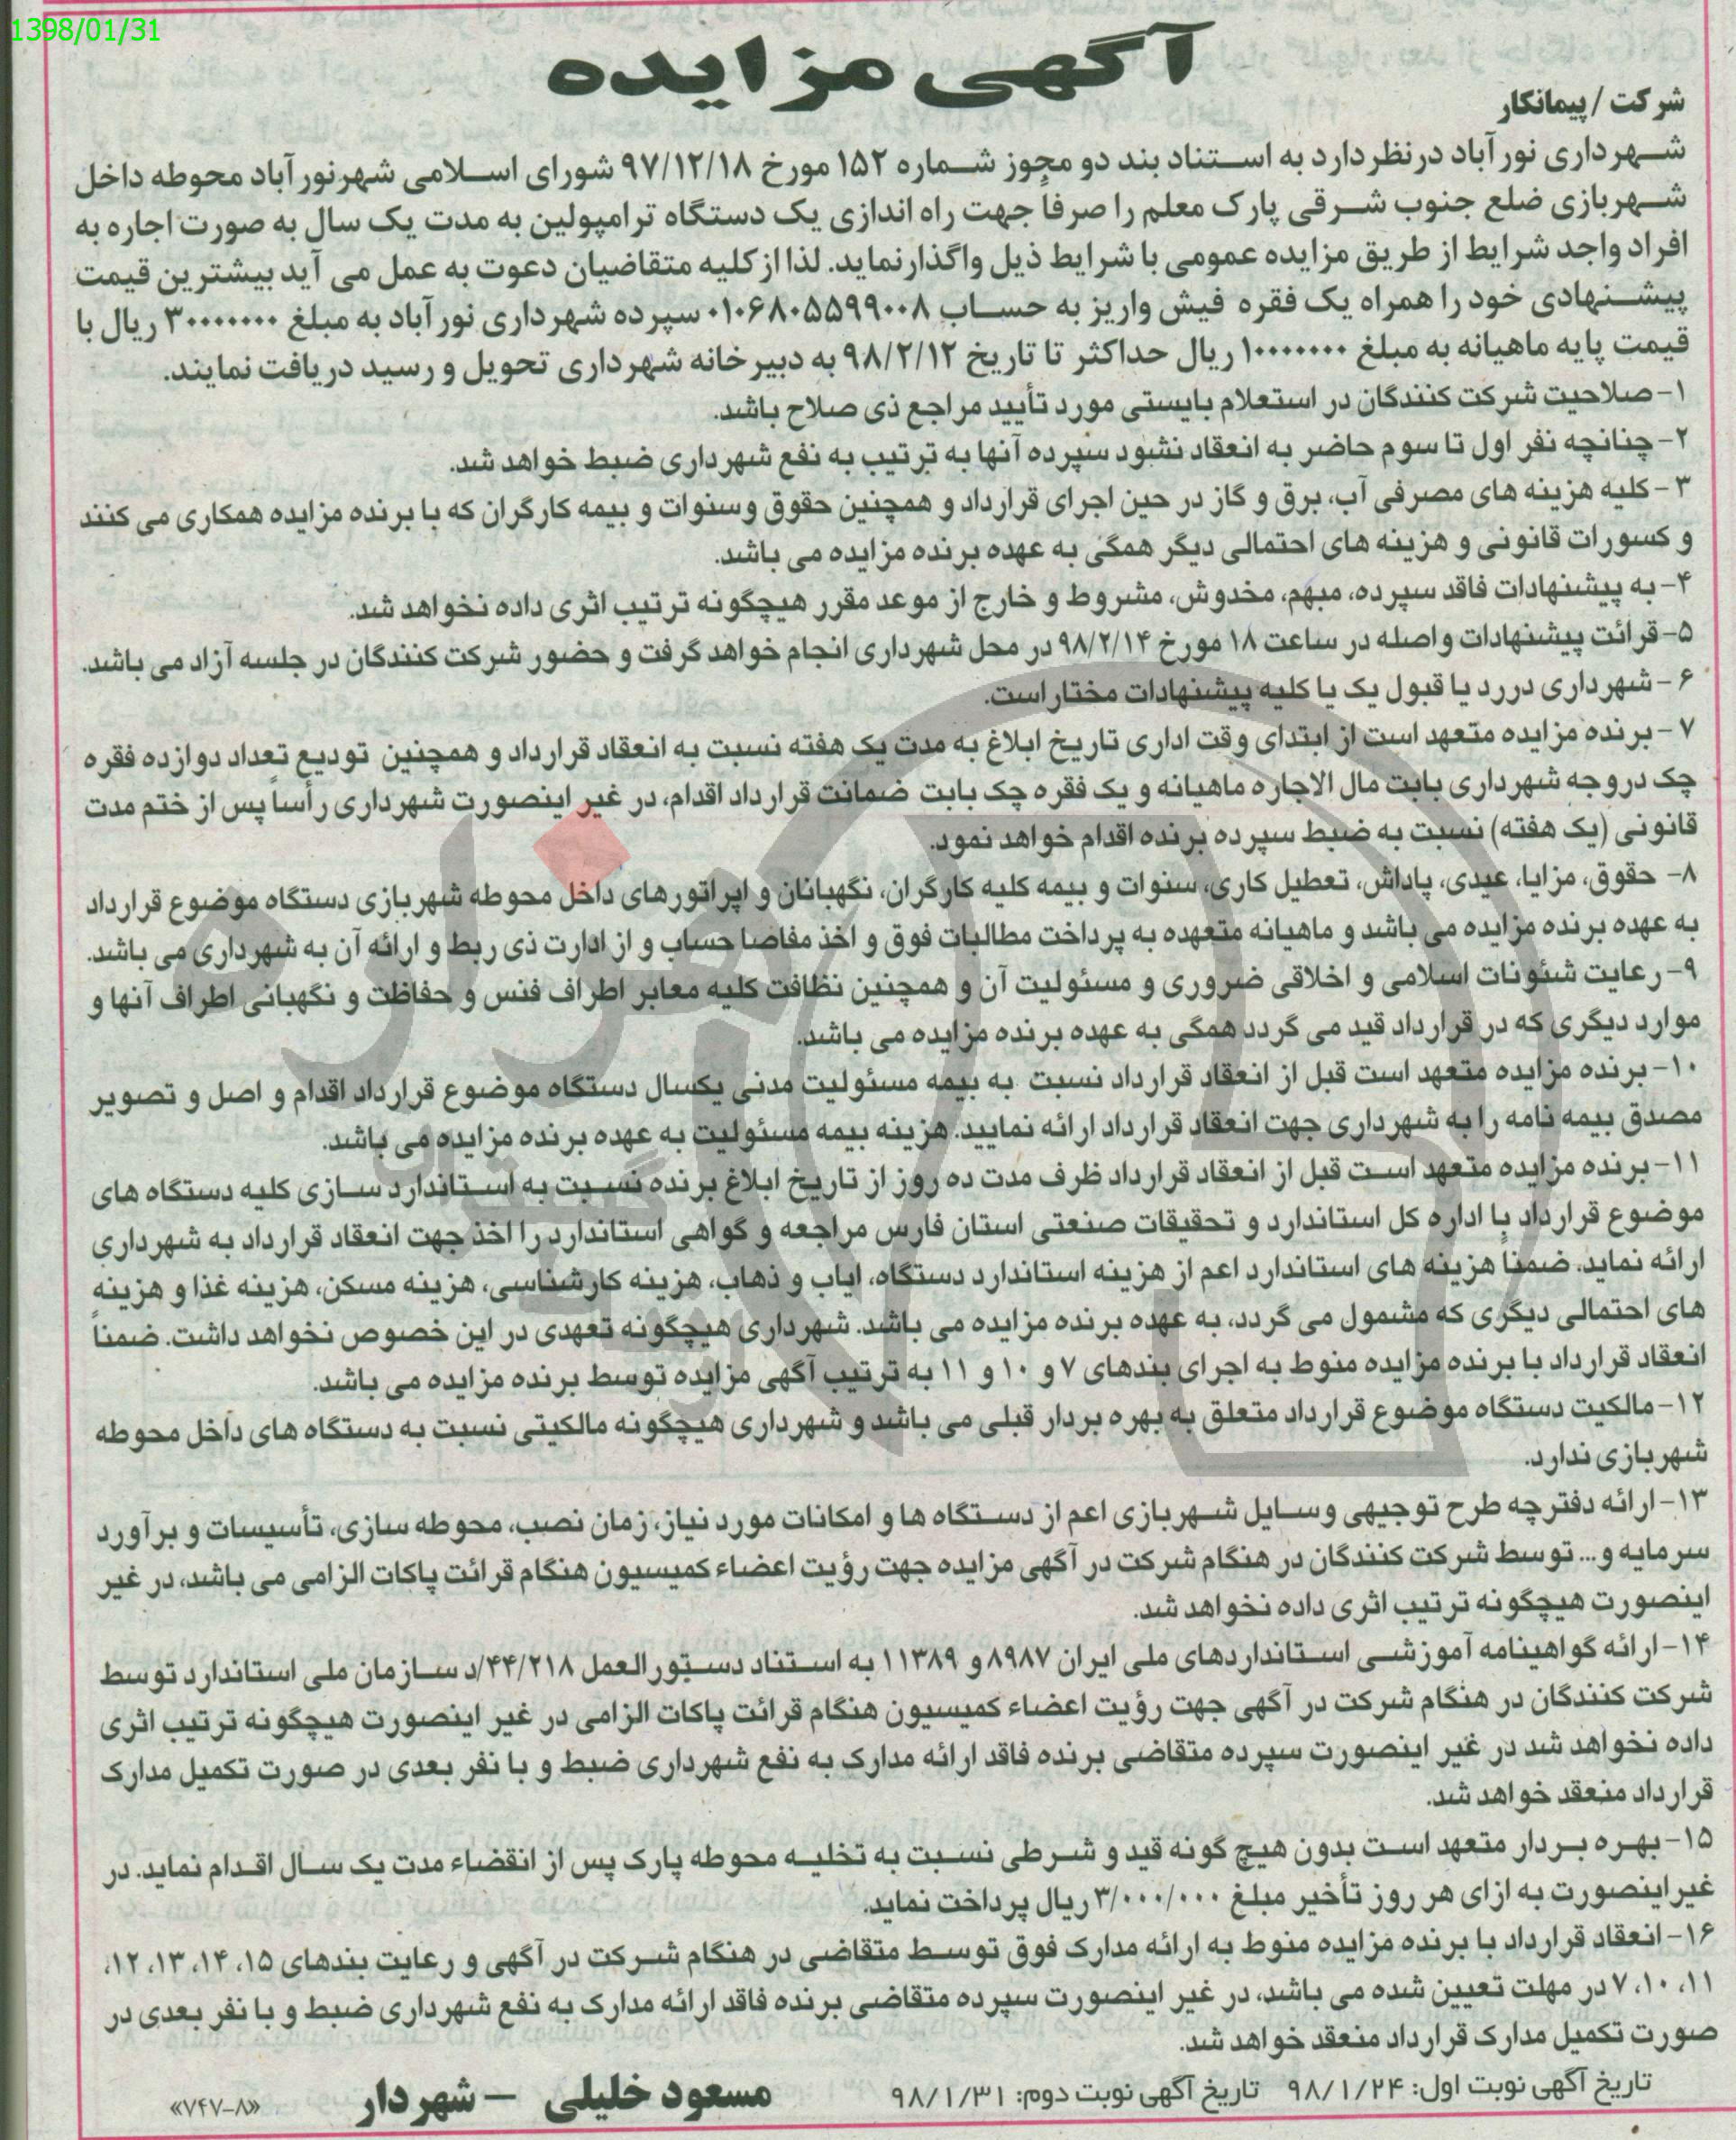 1398/01/31
آگهی مزایده
شرکت / پیمانکار
شهرداری نورآباد درنظر دارد به استناد بند دو مجوز شماره ۱۵۲ مورخ ۹۷/۱۲/۱۸ شورای اسلامی شهرنورآباد محوطه داخل
شهربازی ضلع جنوب شرقی پارک معلم را صرفاً جهت راه اندازی یک دستگاه ترامپولین به مدت یک سال به صورت اجاره به
افراد واجد شرایط از طریق مزایده عمومی با شرایط ذیل واگذارنماید. لذا از کلیه متقاضیان دعوت به عمل می آید بیشترین قیمت
پیشنهادی خود را همراه یک فقره فیش واریز به حساب ۰۱۰۶۸۰۵۵۹۹۰۰۸ سپرده شهرداری نورآباد به مبلغ ۳۰۰۰۰۰۰۰ ریال با
قیمت پایه ماهیانه به مبلغ ۱۰۰۰۰۰۰۰ ریال حداکثر تا تاریخ ۹۸/۲/۱۲ به دبیرخانه شهرداری تحویل و رسید دریافت نمایند.
۱- صلاحیت شرکت کنندگان در استعلام بایستی مورد تأیید مراجع ذی صلاح باشد.
۲- چنانچه نفر اول تا سوم حاضر به انعقاد نشود سپرده آنها به ترتیب به نفع شهرداری ضبط خواهد شد.
۳- کلیه هزینه های مصرفی آب، برق و گاز در حین اجرای قرارداد و همچنین حقوق وسنوات و بیمه کارگران که با برنده مزایده همکاری می کنند
و کسورات قانونی و هزینه های احتمالی دیگر همگی به عهده برنده مزایده می باشد.
۴- به پیشنهادات فاقد سپرده، مبهم، مخدوش، مشروط و خارج از موعد مقرر هیچگونه ترتیب اثری داده نخواهد شد.
۵- قرائت پیشنهادات واصله در ساعت ۱۸ مورخ ۹۸/۲/۱۴ در محل شهرداری انجام خواهد گرفت و حضور شرکت کنندگان در جلسه آزاد می باشد.
۶- شهرداری دررد یا قبول یک یا کلیه پیشنهادات مختار است.
۷- برنده مزایده متعهد است از ابتدای وقت اداری تاریخ ابلاغ به مدت یک هفته نسبت به انعقاد قرارداد و همچنین تودیع تعداد دوازده فقره
چک دروجه شهرداری بابت مال الاجاره ماهیانه و یک فقره چک بابت ضمانت قرارداد اقدام، در غیر اینصورت شهرداری رأساً پس از ختم مدت
قانونی (یک هفته) نسبت به ضبط سپرده برنده اقدام خواهد نمود.
۸- حقوق، مزایا، عیدی، پاداش، تعطیل کاری، سنوات و بیمه کلیه کارگران، نگهبانان و اپراتورهای داخل محوطه شهربازی دستگاه موضوع قرارداد
به عهده برنده مزایده می باشد و ماهیانه متعهده به پرداخت مطالبات فوق و اخذ مفاصا حساب و از ادارت ذی ربط و ارائه آن به شهرداری می باشد.
۹- رعایت شئونات اسلامی و اخلاقی ضروری و مسئولیت آن و همچنین نظافت کلیه معابر اطراف فنس و حفاظت و نگهبانی اطراف آنها و
موارد دیگری که در قرارداد قید می گردد همگی به عهده برنده مزایده می باشد.
۱۰- برنده مزایده متعهد است قبل از انعقاد قرارداد نسبت به بیمه مسئولیت مدنی یکسال دستگاه موضوع قرارداد اقدام و اصل و تصویر
مصدق بیمه نامه را به شهرداری جهت انعقاد قرارداد ارائه نمایید. هزینه بیمه مسئولیت به عهده برنده مزایده می باشد.
۱۱- برنده مزایده متعهد است قبل از انعقاد قرارداد ظرف مدت ده روز از تاریخ ابلاغ برنده نسبت به استاندارد سازی کلیه دستگاه های
موضوع قرارداد با اداره کل استاندارد و تحقیقات صنعتی استان فارس مراجعه و گواهی استاندارد را اخذ جهت انعقاد قرارداد به شهرداری
ارائه نماید، ضمناً هزینه های استاندارد اعم از هزینه استاندارد دستگاه، ایاب و ذهاب، هزینه کارشناسی، هزینه مسکن، هزینه غذا و هزینه
های احتمالی دیگری که مشمول می گردد، به عهده برنده مزایده می باشد. شهرداری هیچگونه تعهدی در این خصوص نخواهد داشت. ضمناً
انعقاد قرارداد با برنده مزایده منوط به اجرای بندهای ۷ و ۱۰ و ۱۱ به ترتیب آگهی مزایده توسط برنده مزایده می باشد.
۱۲- مالکیت دستگاه موضوع قرارداد متعلق به بهره بردار قبلی می باشد و شهرداری هیچگونه مالکیتی نسبت به دستگاه های داخل محوطه
شهربازی ندارد.
۱۳- ارائه دفترچه طرح توجیهی وسایل شهربازی اعم از دستگاه ها و امکانات مورد نیاز، زمان نصب، محوطه سازی، تأسیسات و برآورد
سرمایه و... توسط شرکت کنندگان در هنگام شرکت در آگهی مزایده جهت رؤیت اعضاء کمیسیون هنگام قرائت پاکات الزامی می باشد، در غیر
اینصورت هیچگونه ترتیب اثری داده نخواهد شد.
۱۴- ارائه گواهینامه آموزشی استانداردهای ملی ایران ۸۹۸۷ و ۱۱۳۸۹ به استناد دستورالعمل ۴۴/۲۱۸/د سازمان ملی استاندارد توسط
شرکت کنندگان در هنگام شرکت در آگهی جهت رؤیت اعضاء کمیسیون هنگام قرائت پاکات الزامی در غیر اینصورت هیچگونه ترتیب اثری
داده نخواهد شد در غیر اینصورت سپرده متقاضی برنده فاقد ارائه مدارک به نفع شهرداری ضبط و با نفر بعدی در صورت تکمیل مدارک
قرارداد منعقد خواهد شد.
۱۵- بهره بردار متعهد است بدون هیچ گونه قید و شرطی نسبت به تخلیه محوطه پارک پس از انقضاء مدت یک سال اقدام نماید. در
غیراینصورت به ازای هر روز تأخیر مبلغ ۳/۰۰۰/۰۰۰ ریال پرداخت نماید.
۱۶- انعقاد قرارداد با برنده مزایده منوط به ارائه مدارک فوق توسط متقاضی در هنگام شرکت در آگهی و رعایت بندهای ۱۵، ۱۴، ۱۳، ۱۲،
۱۱، ۱۰، ۷ در مهلت تعیین شده می باشد، در غیر اینصورت سپرده متقاضی برنده فاقد ارائه مدارک به نفع شهرداری ضبط و با نفر بعدی در
صورت تکمیل مدارک قرارداد منعقد خواهد شد.
تاریخ آگهی نوبت اول: ۹۸/۱/۲۴ تاریخ آگهی نوبت دوم: ۹۸/۱/۳۱
مسعود خلیلی – شهردار
«۷۴۷-۸»
هزاره